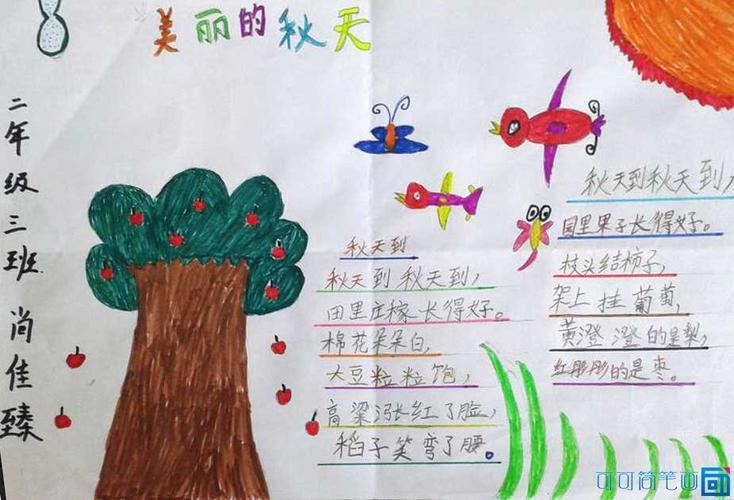 美丽的秋天
二年级三班 尚佳臻
秋天到
秋天到 秋天到,
田里庄稼长得好。
棉花朵朵白,
大豆粒粒饱,
高粱涨红了脸,
稻子笑弯了腰。
秋天到秋天到,
园里果子长得好。
枝头结柿子,
架上挂葡萄,
黄澄澄的是梨,
红彤彤的是枣。
可可简笔画